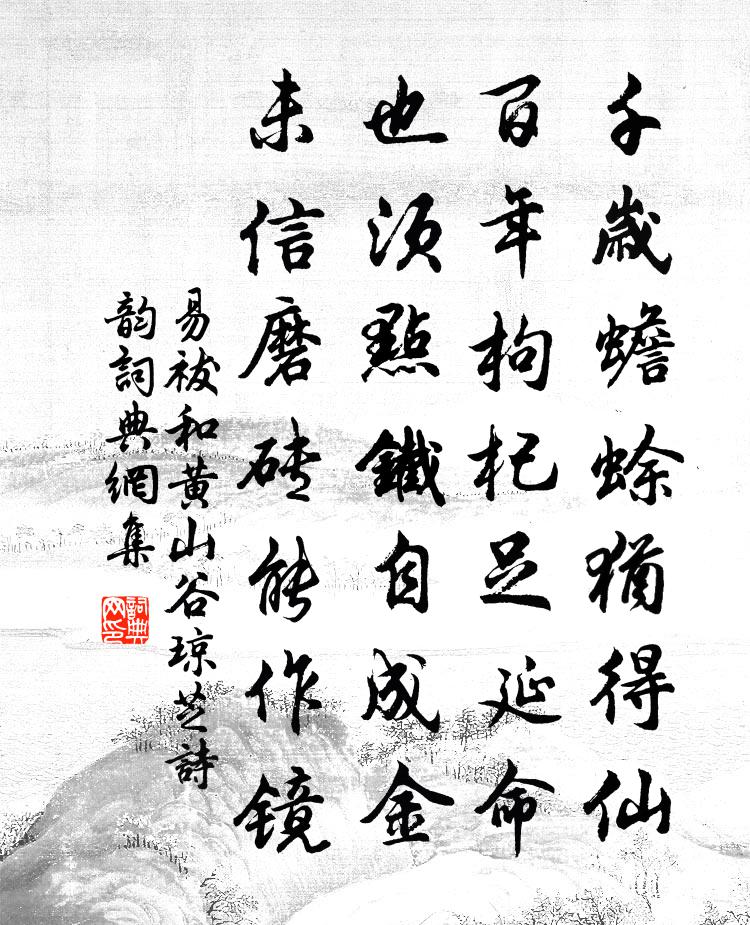 千歲蟾蜍猶得仙
百年枸杞足延命
也須點鐵自成金
未信磨磚能作鏡
易袚和黄山谷琼芝詩
韵詞典網集
詞典網印